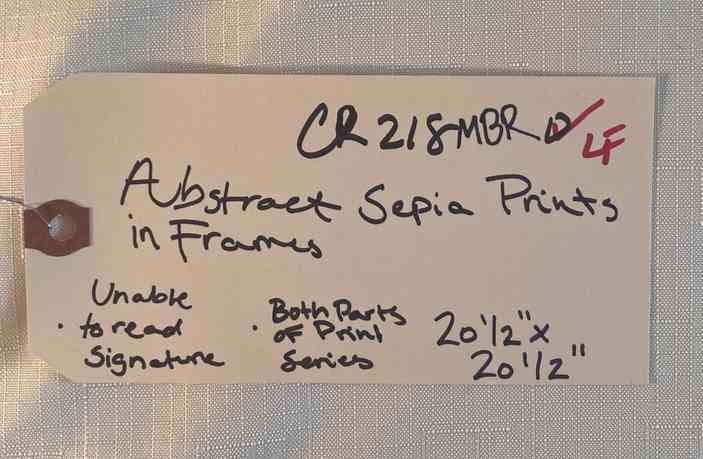 CR 218-MBR D
LF
Abstract Sepia Prints
in Frames
Unable
• to read
Signature
• Both Parts
of Print
Series
20 1/2" x
20 1/2"